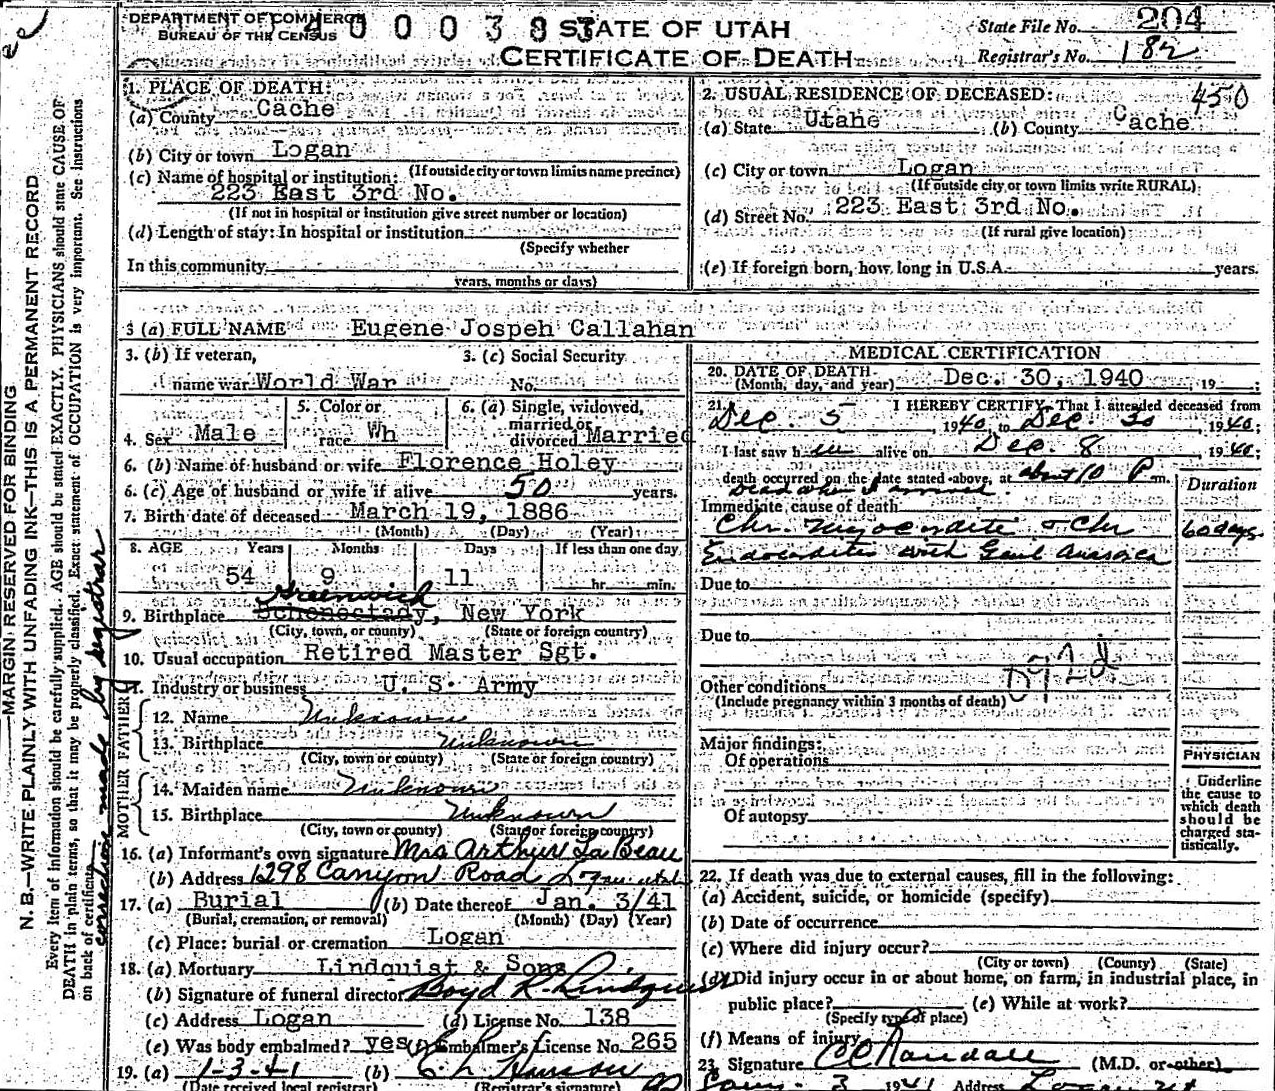 DEPARTMENT OF COMMERCE
BUREAU OF THE CENSUS
4000383
STATE OF UTAH
CERTIFICATE OF DEATH
State File No. 204
Registrar's No. 182
MARGIN RESERVED FOR BINDING
N. B.—WRITE PLAINLY WITH UNFADING INK—THIS IS A PERMANENT RECORD
Every item of information should be carefully supplied. AGE should be stated EXACTLY. PHYSICIANS should state CAUSE OF
DEATH in plain terms, so that it may be properly classified. Exact statement of OCCUPATION is very important. See instructions
on back of certificate.
correction made by registrar
1. PLACE OF DEATH:
(a) County Cache
(b) City or town Logan
(If outside city or town limits name precinct)
(c) Name of hospital or institution:
223 East 3rd No.
(If not in hospital or institution give street number or location)
(d) Length of stay: In hospital or institution
(Specify whether
In this community
years, months or days)
2. USUAL RESIDENCE OF DECEASED: 450
(a) State Utahe (b) County Cache
(c) City or town Logan
(If outside city or town limits write RURAL)
(d) Street No. 223 East 3rd No.
(If rural give location)
(e) If foreign born, how long in U.S.A. years.
3 (a) FULL NAME Eugene Jospeh Callahan
3. (b) If veteran,
name war World War
3. (c) Social Security
No.
4. Sex Male
5. Color or
race Wh
6. (a) Single, widowed,
married or
divorced Married
6. (b) Name of husband or wife Florence Holey
6. (c) Age of husband or wife if alive 50 years.
7. Birth date of deceased March 19, 1886
(Month) (Day) (Year)
8. AGE Years Months Days If less than one day
54 9 11 hr. min.
Greenwich
9. Birthplace Schenectady, New York
(City, town, or county) (State or foreign country)
10. Usual occupation Retired Master Sgt.
11. Industry or business U. S. Army
FATHER
12. Name Unknown
13. Birthplace Unknown
(City, town or county) (State or foreign country)
MOTHER
14. Maiden name Unknown
15. Birthplace Unknown
(City, town or county) (State or foreign country)
16. (a) Informant's own signature Mrs Arthur La Beau
(b) Address 1298 Canyon Road Logan Utah
17. (a) Burial (b) Date thereof Jan. 3/41
(Burial, cremation, or removal) (Month) (Day) (Year)
(c) Place: burial or cremation Logan
18. (a) Mortuary Lindquist & Sons
(b) Signature of funeral director Boyd R. Lindquist
(c) Address Logan (d) License No. 138
(e) Was body embalmed? yes (f) Embalmer's License No. 265
19. (a) 1-3-41 (b)
(Date received local registrar) (Registrar's signature)
MEDICAL CERTIFICATION
20. DATE OF DEATH
(Month, day, and year) Dec. 30, 1940, 19 ;
21. I HEREBY CERTIFY, That I attended deceased from
Dec. 5, 1940, to Dec. 30, 1940;
I last saw him alive on Dec. 8, 1940;
death occurred on the date stated above, at about 10 P m.
Dead when I arrived.
Duration
Immediate cause of death
Chr. Myocardite & Chr 60 days
Endocardites with Genl Anasarca
Due to
Due to
Other conditions
(Include pregnancy within 3 months of death)
Major findings:
Of operations
Of autopsy
PHYSICIAN
Underline
the cause to
which death
should be
charged sta-
tistically.
22. If death was due to external causes, fill in the following:
(a) Accident, suicide, or homicide (specify)
(b) Date of occurrence
(c) Where did injury occur?
(City or town) (County) (State)
(d) Did injury occur in or about home, on farm, in industrial place, in
public place? (e) While at work?
(Specify type of place)
(f) Means of injury
23. Signature CC Randall (M.D. or other)
3 1941 Address Logan